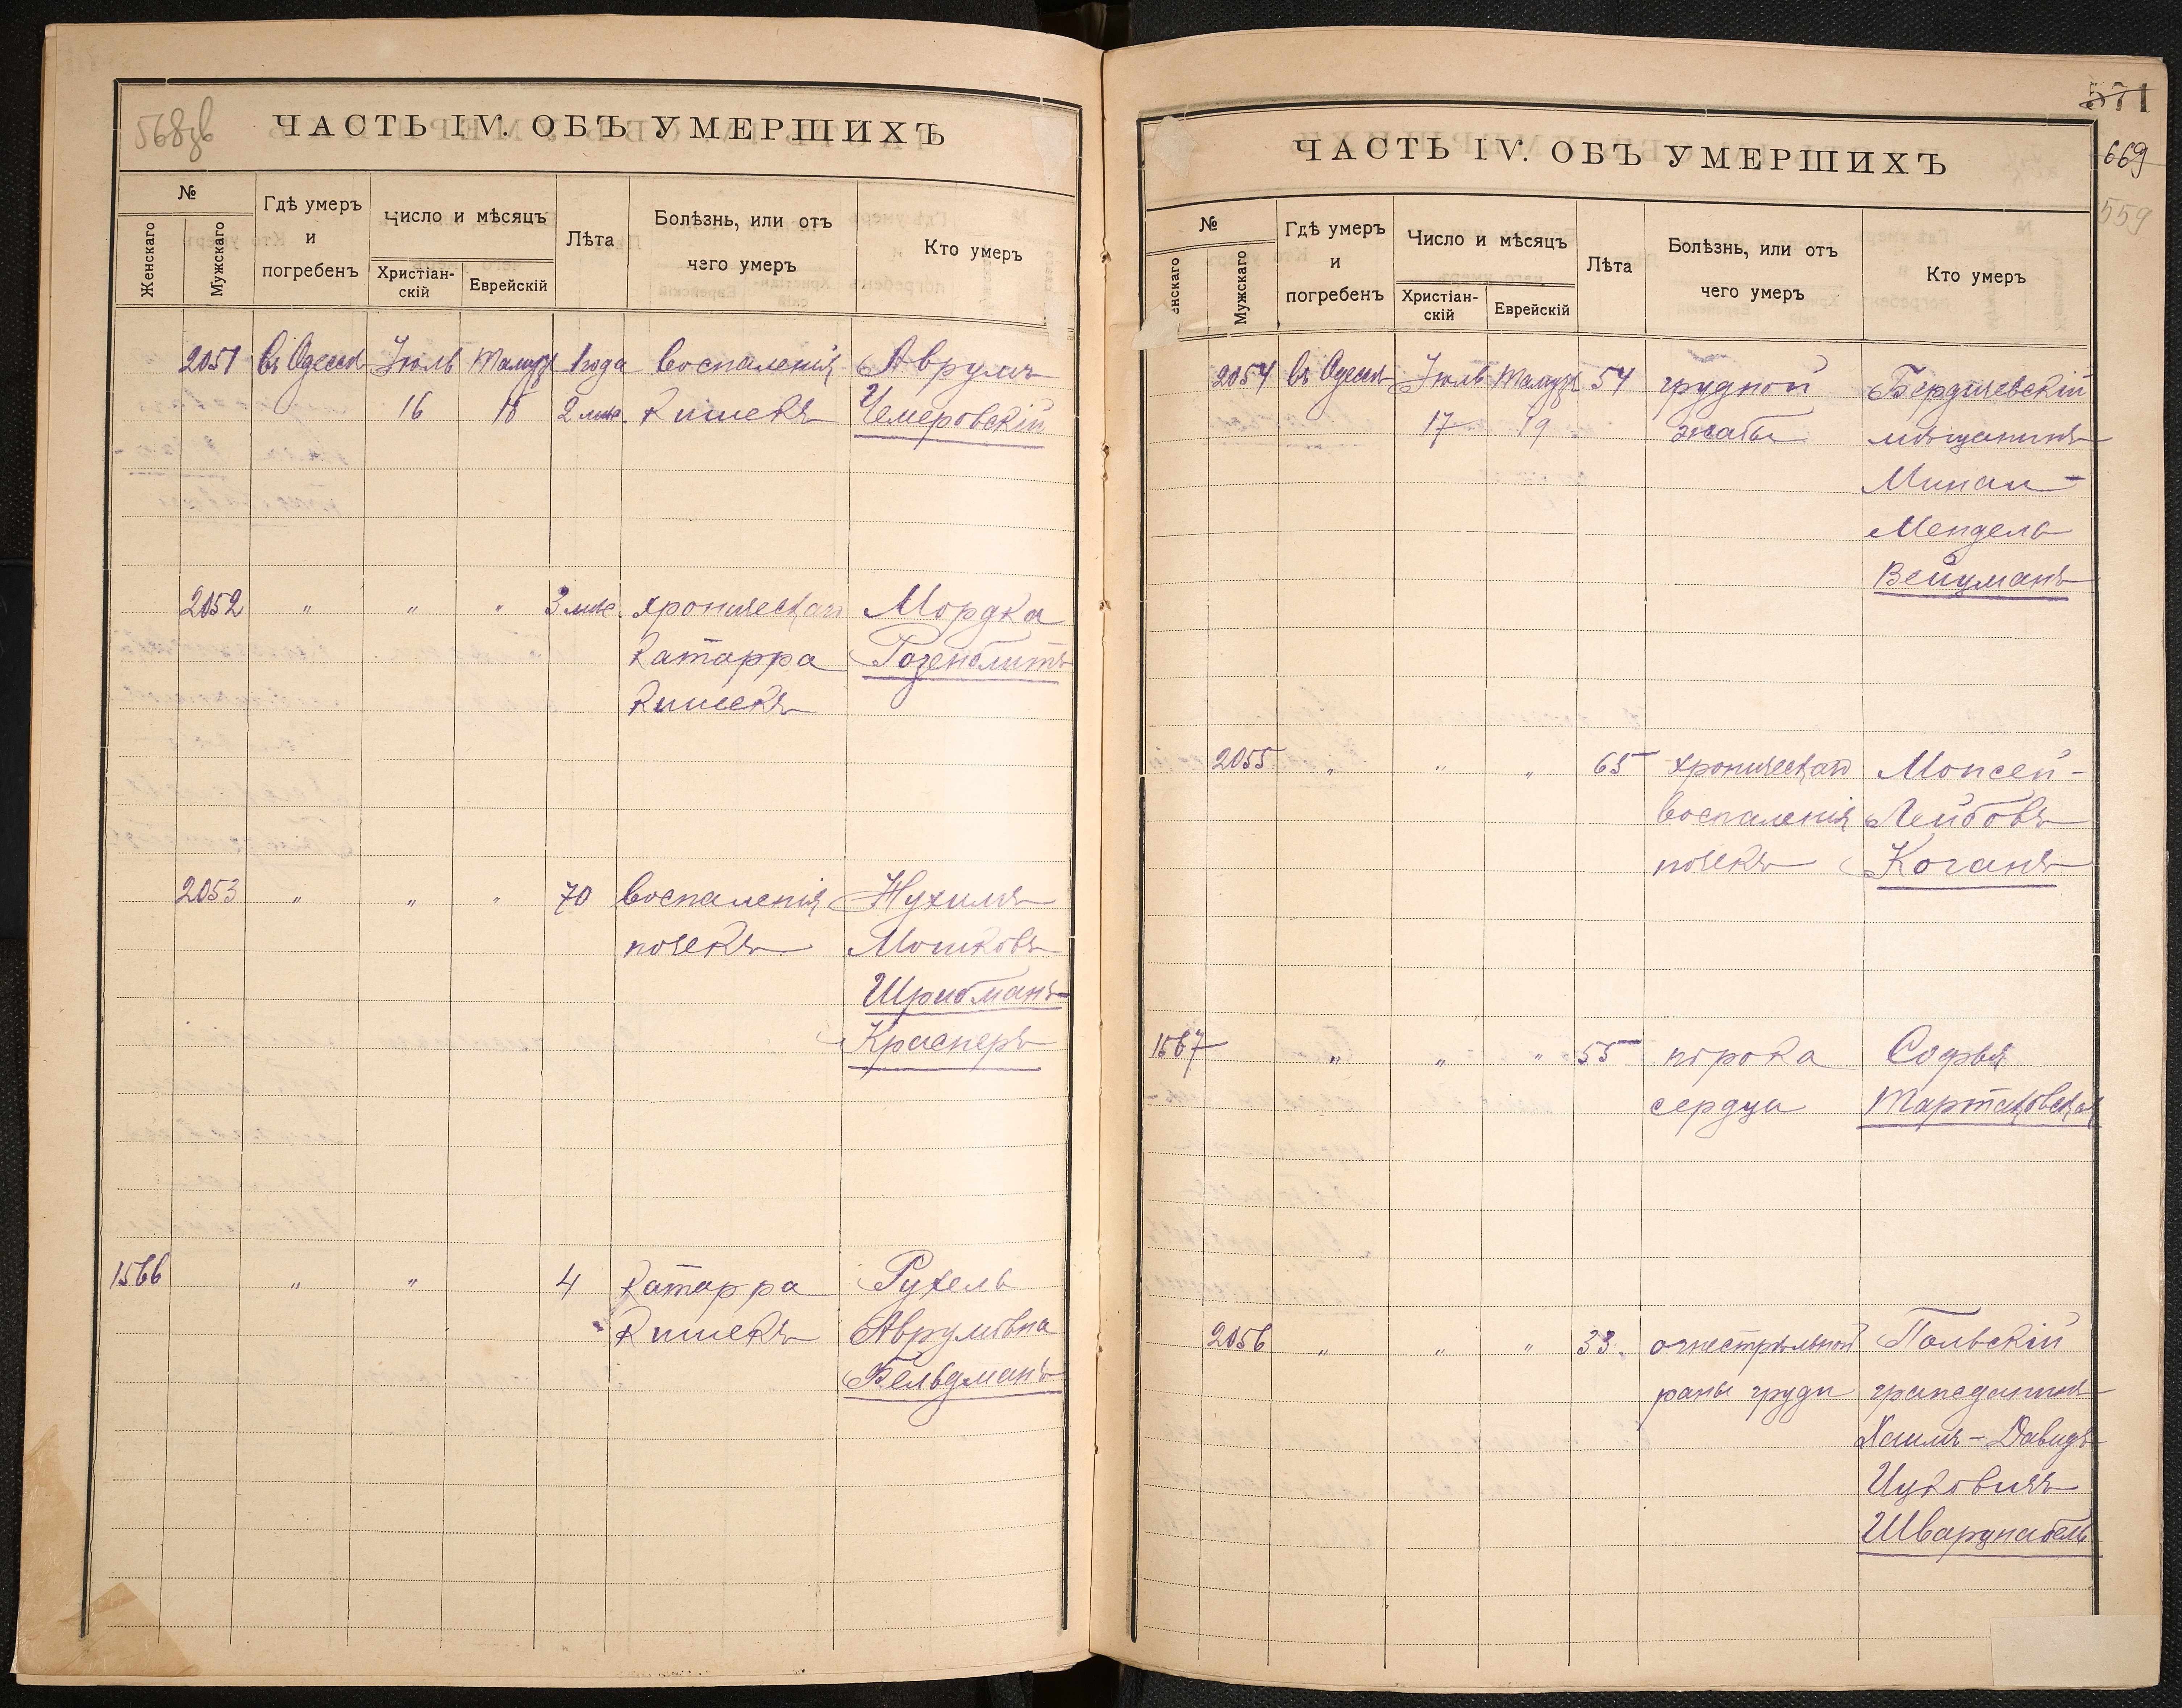 568 об
ЧАСТЬ IV. ОБЪ УМЕРШИХЪ
№
Женскаго
Мужскаго
Гдѣ умеръ
и
погребенъ
Число и мѣсяцъ
Христіан-
скій
Еврейскій
Лѣта
Болѣзнь, или отъ
чего умеръ
Кто умеръ
2051 въ Одессѣ Іюль Тамузъ 1 года воспаленія Аврумъ
16 18 2 мѣс. кишекъ Чемеровскій
2052 " " " 3 мѣс. хроническаго Мордка
катарра Розенблитъ
кишекъ
2053 " " " 70 воспаленія Нухимъ
почекъ Мошковъ
Шрибманъ-
Краснеръ
1566 " " 4 катарра Рухель
кишекъ Аврумовна
Фельдманъ
571
669
559
ЧАСТЬ IV. ОБЪ УМЕРШИХЪ
№
енскаго
Мужскаго
Гдѣ умеръ
и
погребенъ
Число и мѣсяцъ
Христіан-
скій
Еврейскій
Лѣта
Болѣзнь, или отъ
чего умеръ
Кто умеръ
2054 въ Одессѣ Іюль Тамузъ 54 грудной Бердичевскій
17 19 жабы мѣщанинъ
Мендель
Вейцманъ
2055 " " " 65 хроническаго Моисей-
воспаленія Лейбовъ
почекъ Коганъ
1567 " " " 55 порока Софья
сердца Тартаковская
2056 " " " 33. огнестрѣльной Польскій
раны груди гражданинъ
Хаимъ-Давидъ
Ицковичъ
Шварцнабель